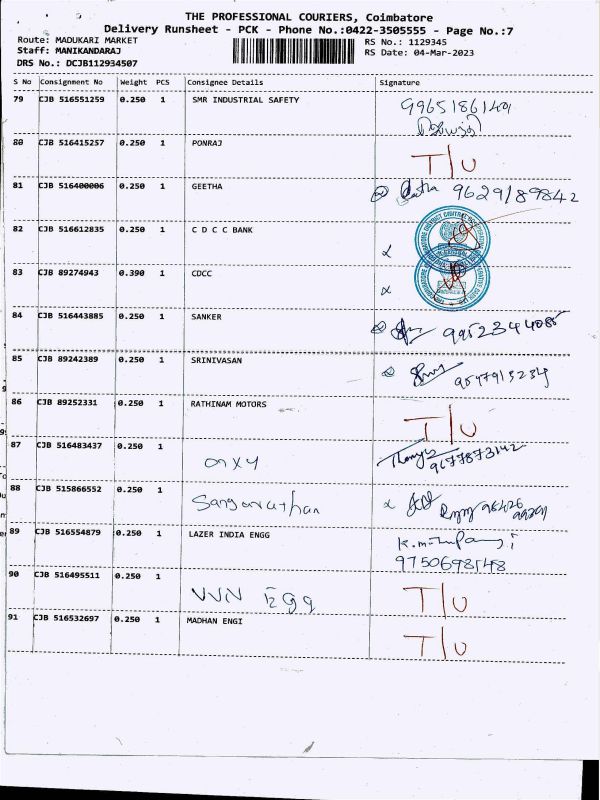 THE PROFESSIONAL COURIERS, Coimbatore
Delivery Runsheet - PCK - Phone No.:0422-3505555 - Page No.:7
Route: MADUKARI MARKET RS No.: 1129345
Staff: MANIKANDARAJ RS Date: 04-Mar-2023
DRS No.: DCJB112934507
S No Consignment No Weight PCS Consignee Details Signature
79 CJB 516551259 0.250 1 SMR INDUSTRIAL SAFETY
80 CJB 516415257 0.250 1 PONRAJ T/U
81 CJB 516400006 0.250 1 GEETHA 9629189842
82 CJB 516612835 0.250 1 C D C C BANK
83 CJB 89274943 0.390 1 CDCC
84 CJB 516443885 0.250 1 SANKER
85 CJB 89242389 0.250 1 SRINIVASAN
86 CJB 89252331 0.250 1 RATHINAM MOTORS T/U
87 CJB 516483437 0.250 1
9677873142
88 CJB 515866552 0.250 1
89 CJB 516554879 0.250 1 LAZER INDIA ENGG
9750698148
90 CJB 516495511 0.250 1 VVN Egg T/U
91 CJB 516532697 0.250 1 MADHAN ENGI T/U